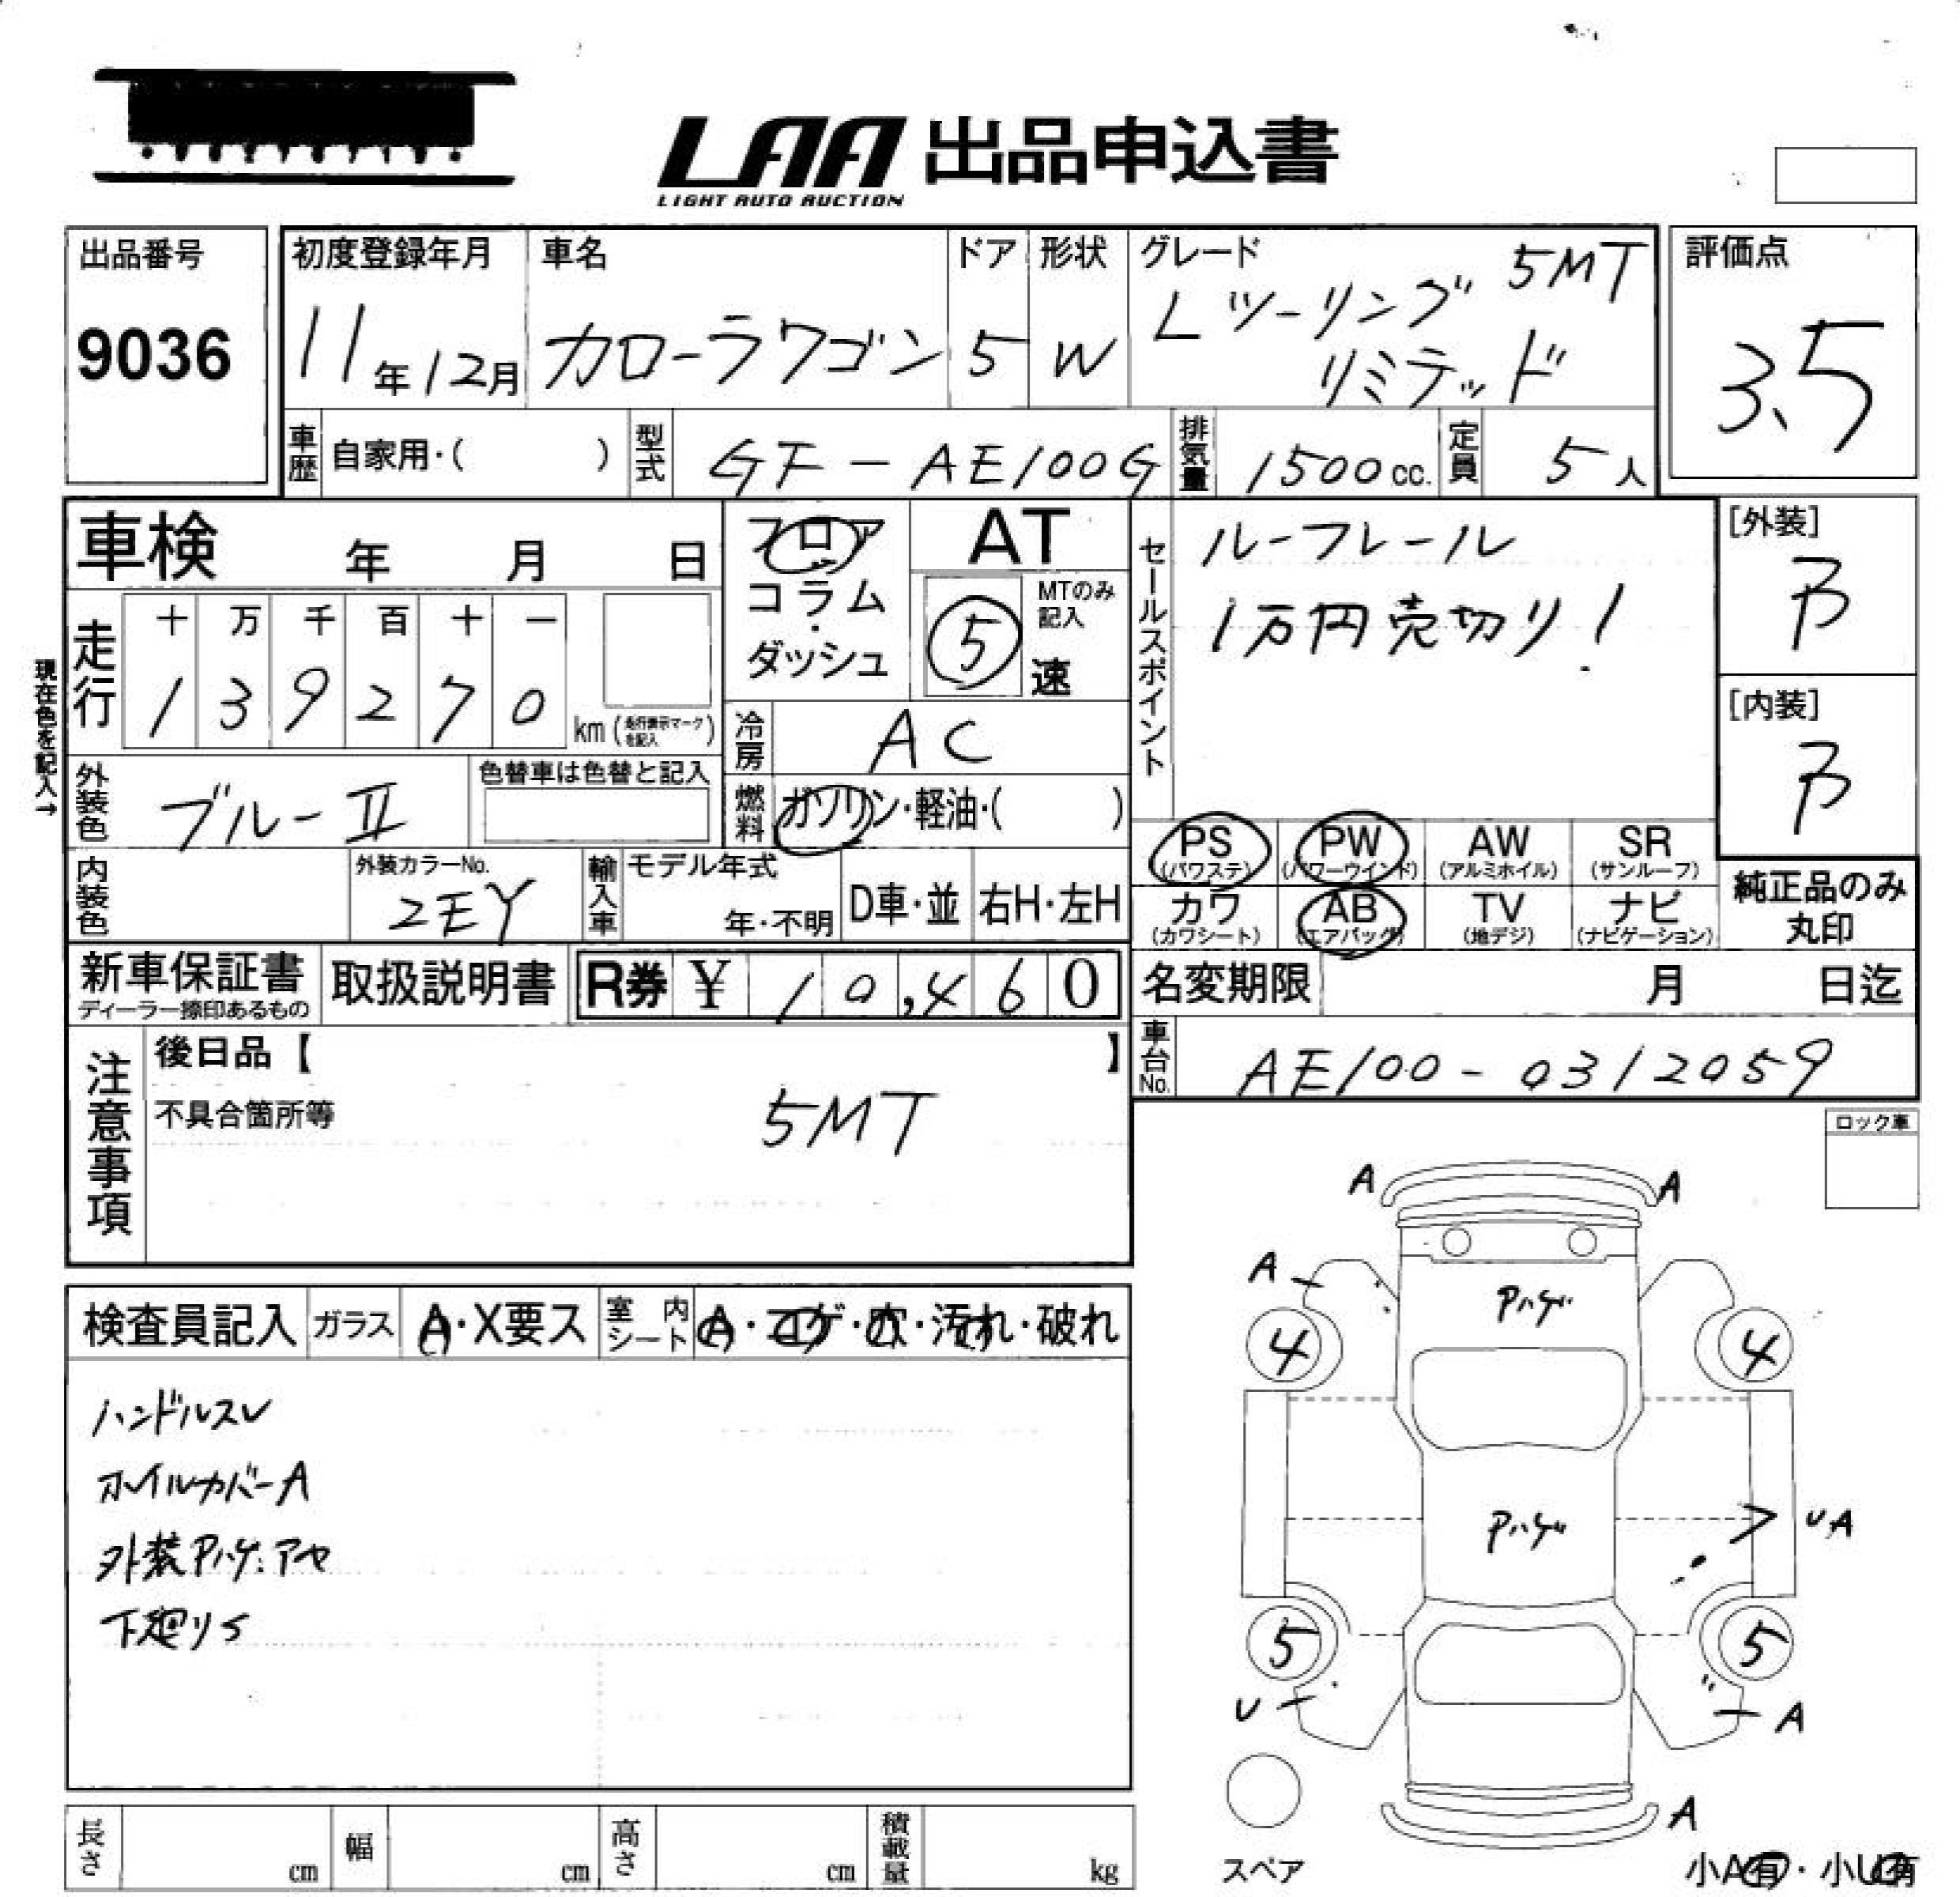 LAA 出品申込書
LIGHT AUTO AUCTION
出品番号
9036
初度登録年月
11年12月
車名
カローラワゴン
ドア
5
形状
W
グレード
Lツーリング 5MT
リミテッド
評価点
3.5
車歴 自家用・( )
型式 GF-AE100G
排気量 1500cc.
定員 5人
車検 年 月 日
フロア
コラム
・
ダッシュ
AT
MTのみ
記入
5速
セールスポイント
ルーフレール
1万円売切り!
[外装]
B
[内装]
B
現在色を記入→
走行
十 万 千 百 十 一
1 3 9 2 7 0 km (走行表示マークを記入)
冷房 AC
外装色 ブルーII
色替車は色替と記入
燃料 ガソリン・軽油・( )
PS (パワステ)
PW (パワーウインド)
AW (アルミホイル)
SR (サンルーフ)
カワ (カワシート)
AB (エアバッグ)
TV (地デジ)
ナビ (ナビゲーション)
純正品のみ
丸印
内装色
外装カラーNo.
2EY
輸入車
モデル年式
年・不明
D車・並
右H・左H
新車保証書
ディーラー捺印あるもの
取扱説明書
R券 ¥ 10,460
名変期限 月 日迄
車台No. AE100-0312059
注意事項
後日品【 】
不具合箇所等
5MT
ロック車
検査員記入
ガラス A・X要ス
室内シート A・コゲ・穴・汚れ・破れ
ハンドルスレ
ホイルカバーA
外装Pハゲ.アセ
下廻りS
A A
A
Pハゲ
4 4
Pハゲ
UA
5 5
U A
A
スペア
小A有・小U有
長さ cm
幅 cm
高さ cm
積載量 kg